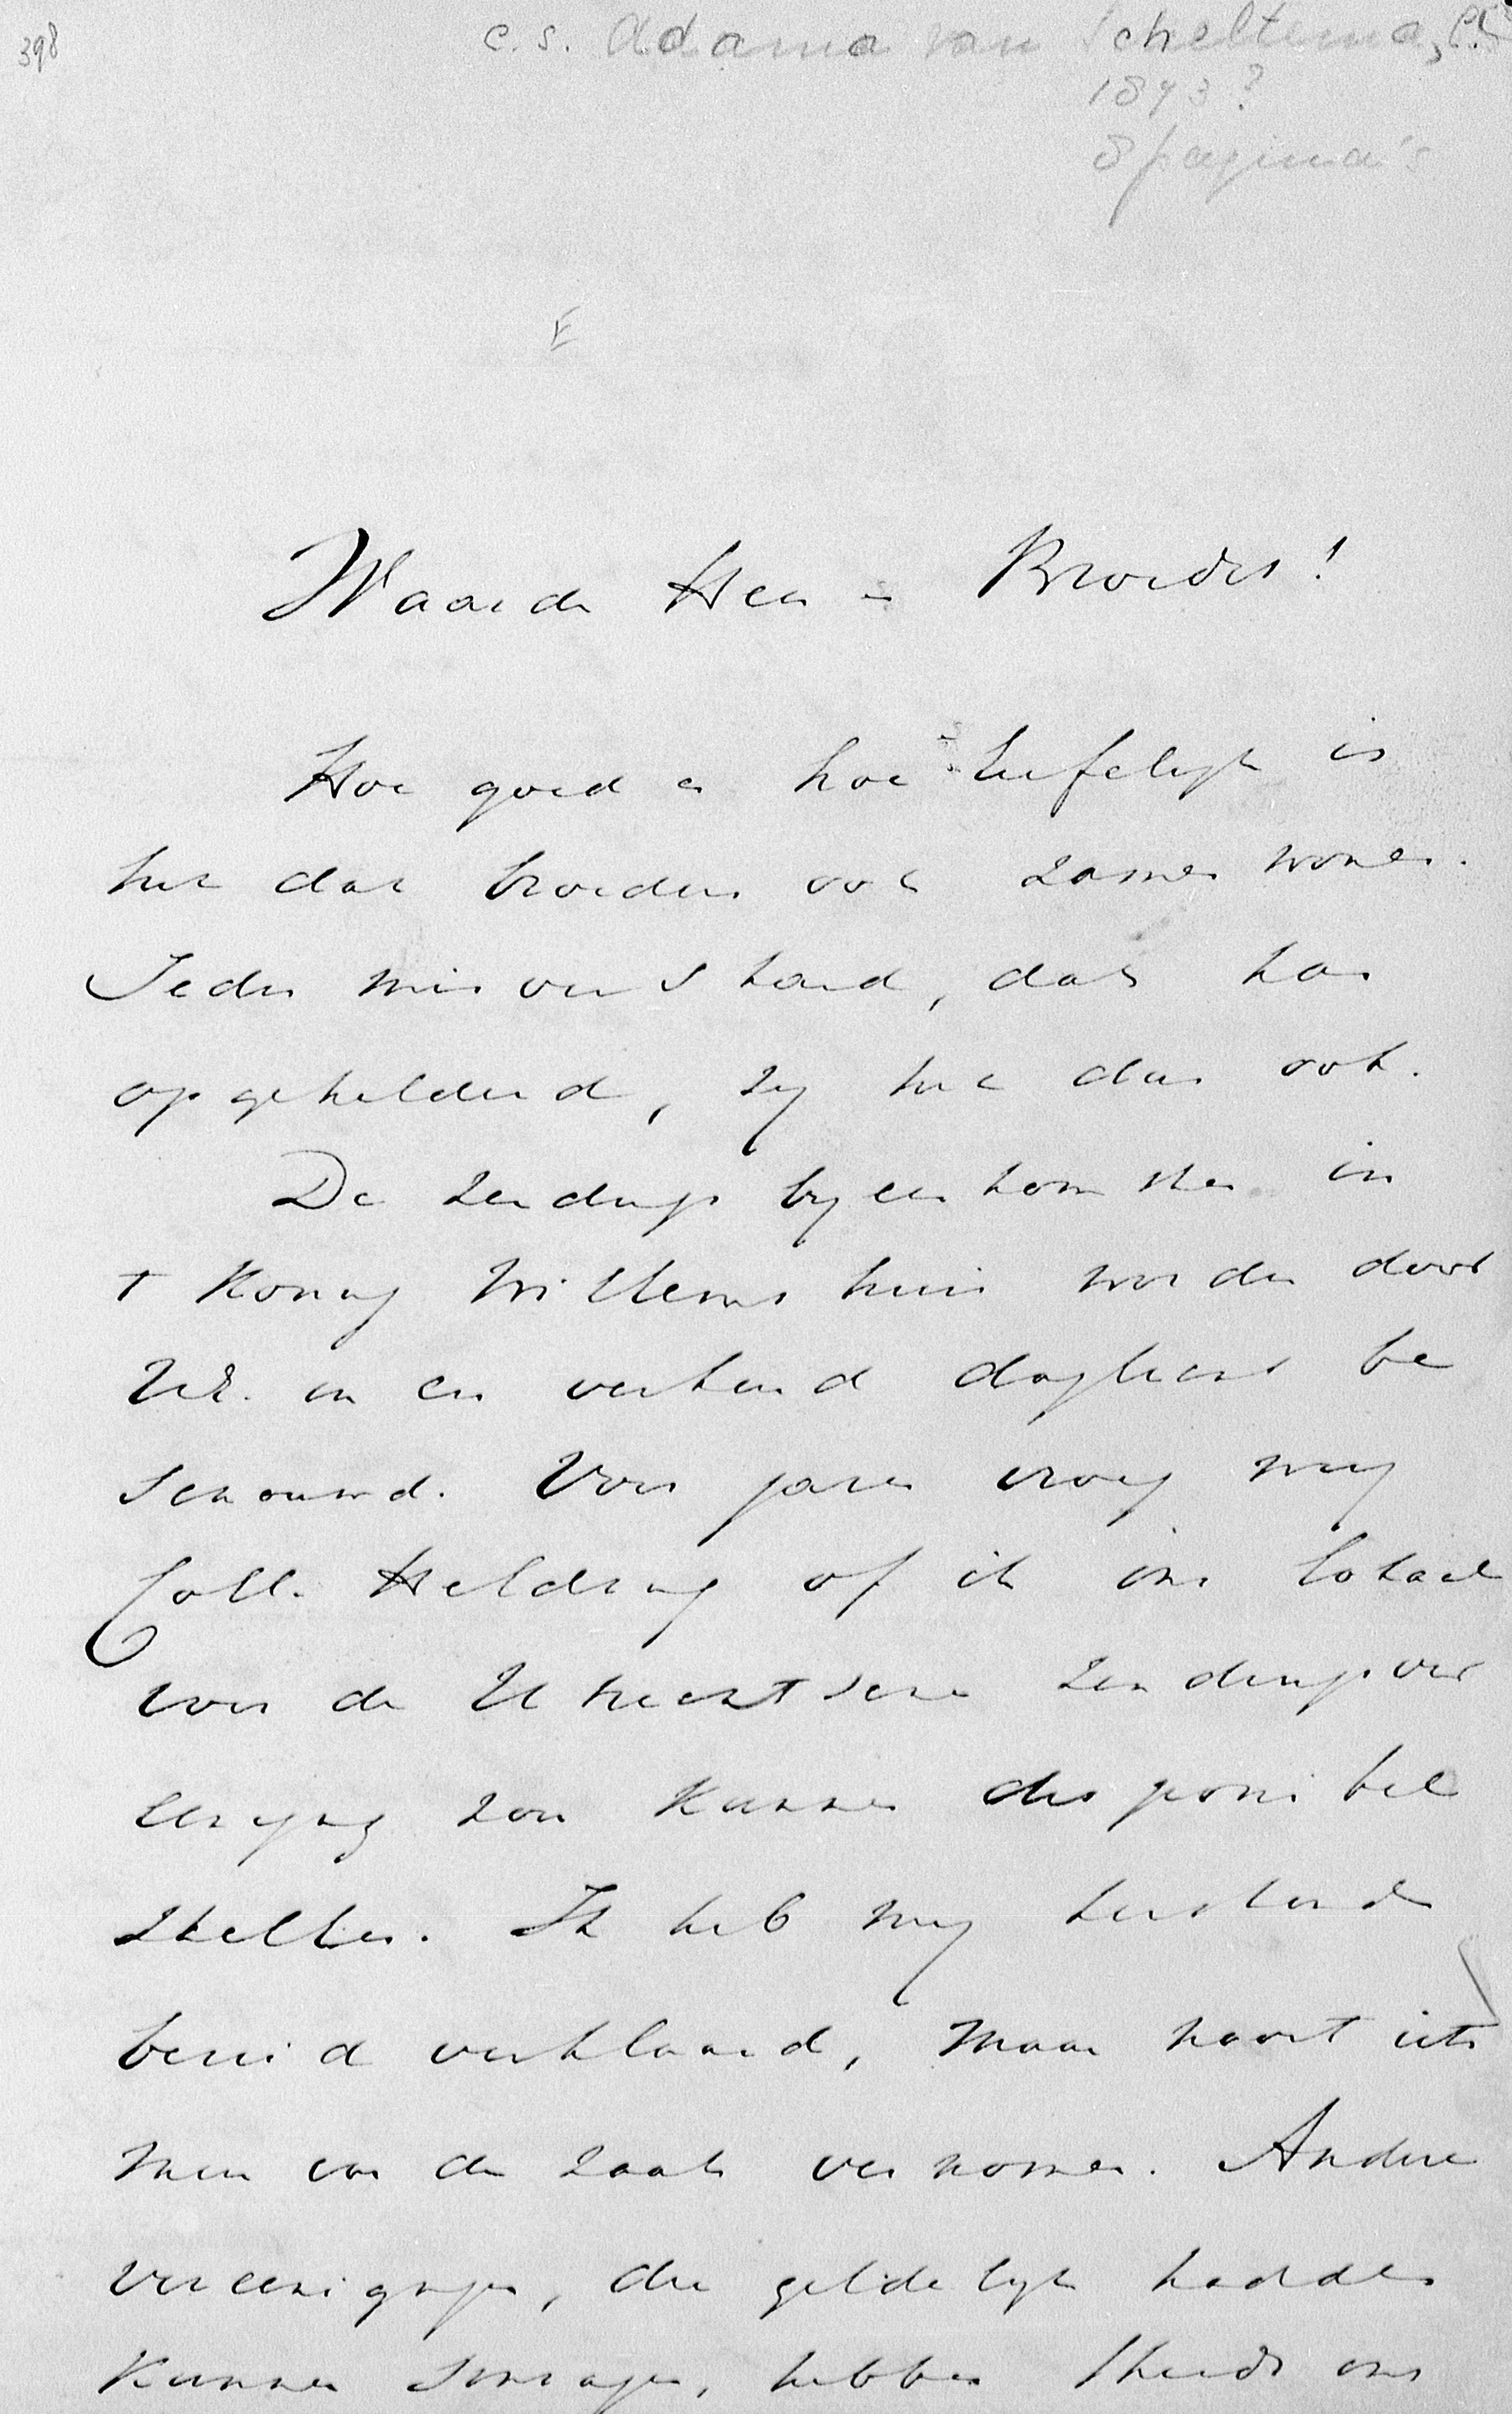 398
c.s. Adama van Scheltema, C.S.
1893?
8 pagina's
Waarde Heer en Broeder!
Hoe goed en hoe liefelijk is
het dat broeders ook zamen wonen.
Ieder misverstand, dat kan
opgehelderd, zij het dan ook.
De zendings bijeenkomsten in
't Koning Willemshuis worden door
UE. in een verkeerd daglicht be
schouwd. Voor jaren vroeg mij
Coll. Heldring of ik ons lokaal
voor de Utrechtsche Zendingsver
eeniging zou kunnen disponibel
stellen. Ik heb mij
bereid verklaard, maar nooit iets
meer van de zaak vernomen. Andere
vereenigingen, die geldelijk hadden
kunnen hebben steeds ons